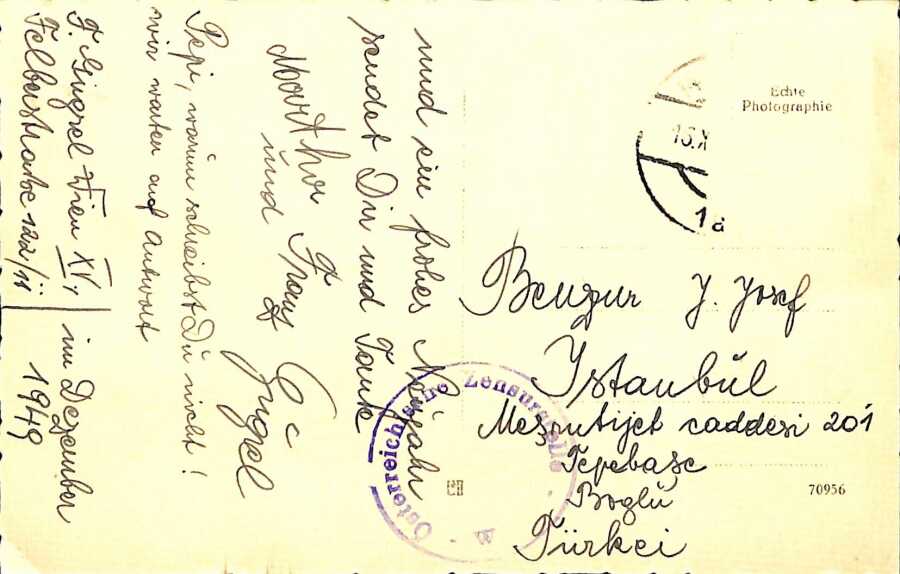 und ein frohes Neujahr
sendet Dir und Tante
Martha Franz
und
Pepi, warum schreibst Du nicht!
wir warten auf Antwort
Wien XV,
Felberstraße 122/11
im Dezember
1949
Echte
Photographie
1a
J. Josef
Istanbul
Mesrutijet caddesi 201
Tepebase
Boglü
Türkei
Österreichische Zensurstelle
70956